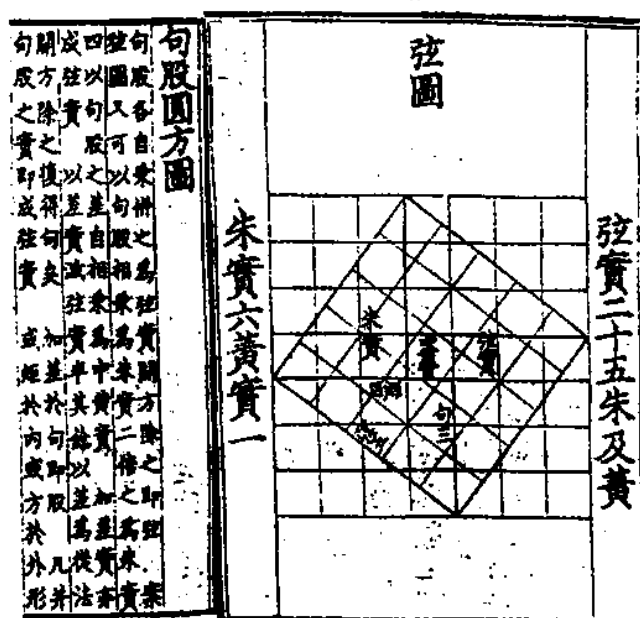 弦圖
弦實二十五朱及黃
朱實
句三
朱實六黃實一
句股圓方圖
句股各自乘併之為弦實開方除之即弦 案
弦圖又可以句股相乘為朱實二倍之為朱實
四以句股之差自相乘為中黃實 加差實亦
成弦實 以差實減弦實半其餘以差為從法
開方除之復得句矣 加差於句即股 凡并
句股之實即成弦實 或矩於內或方於外形